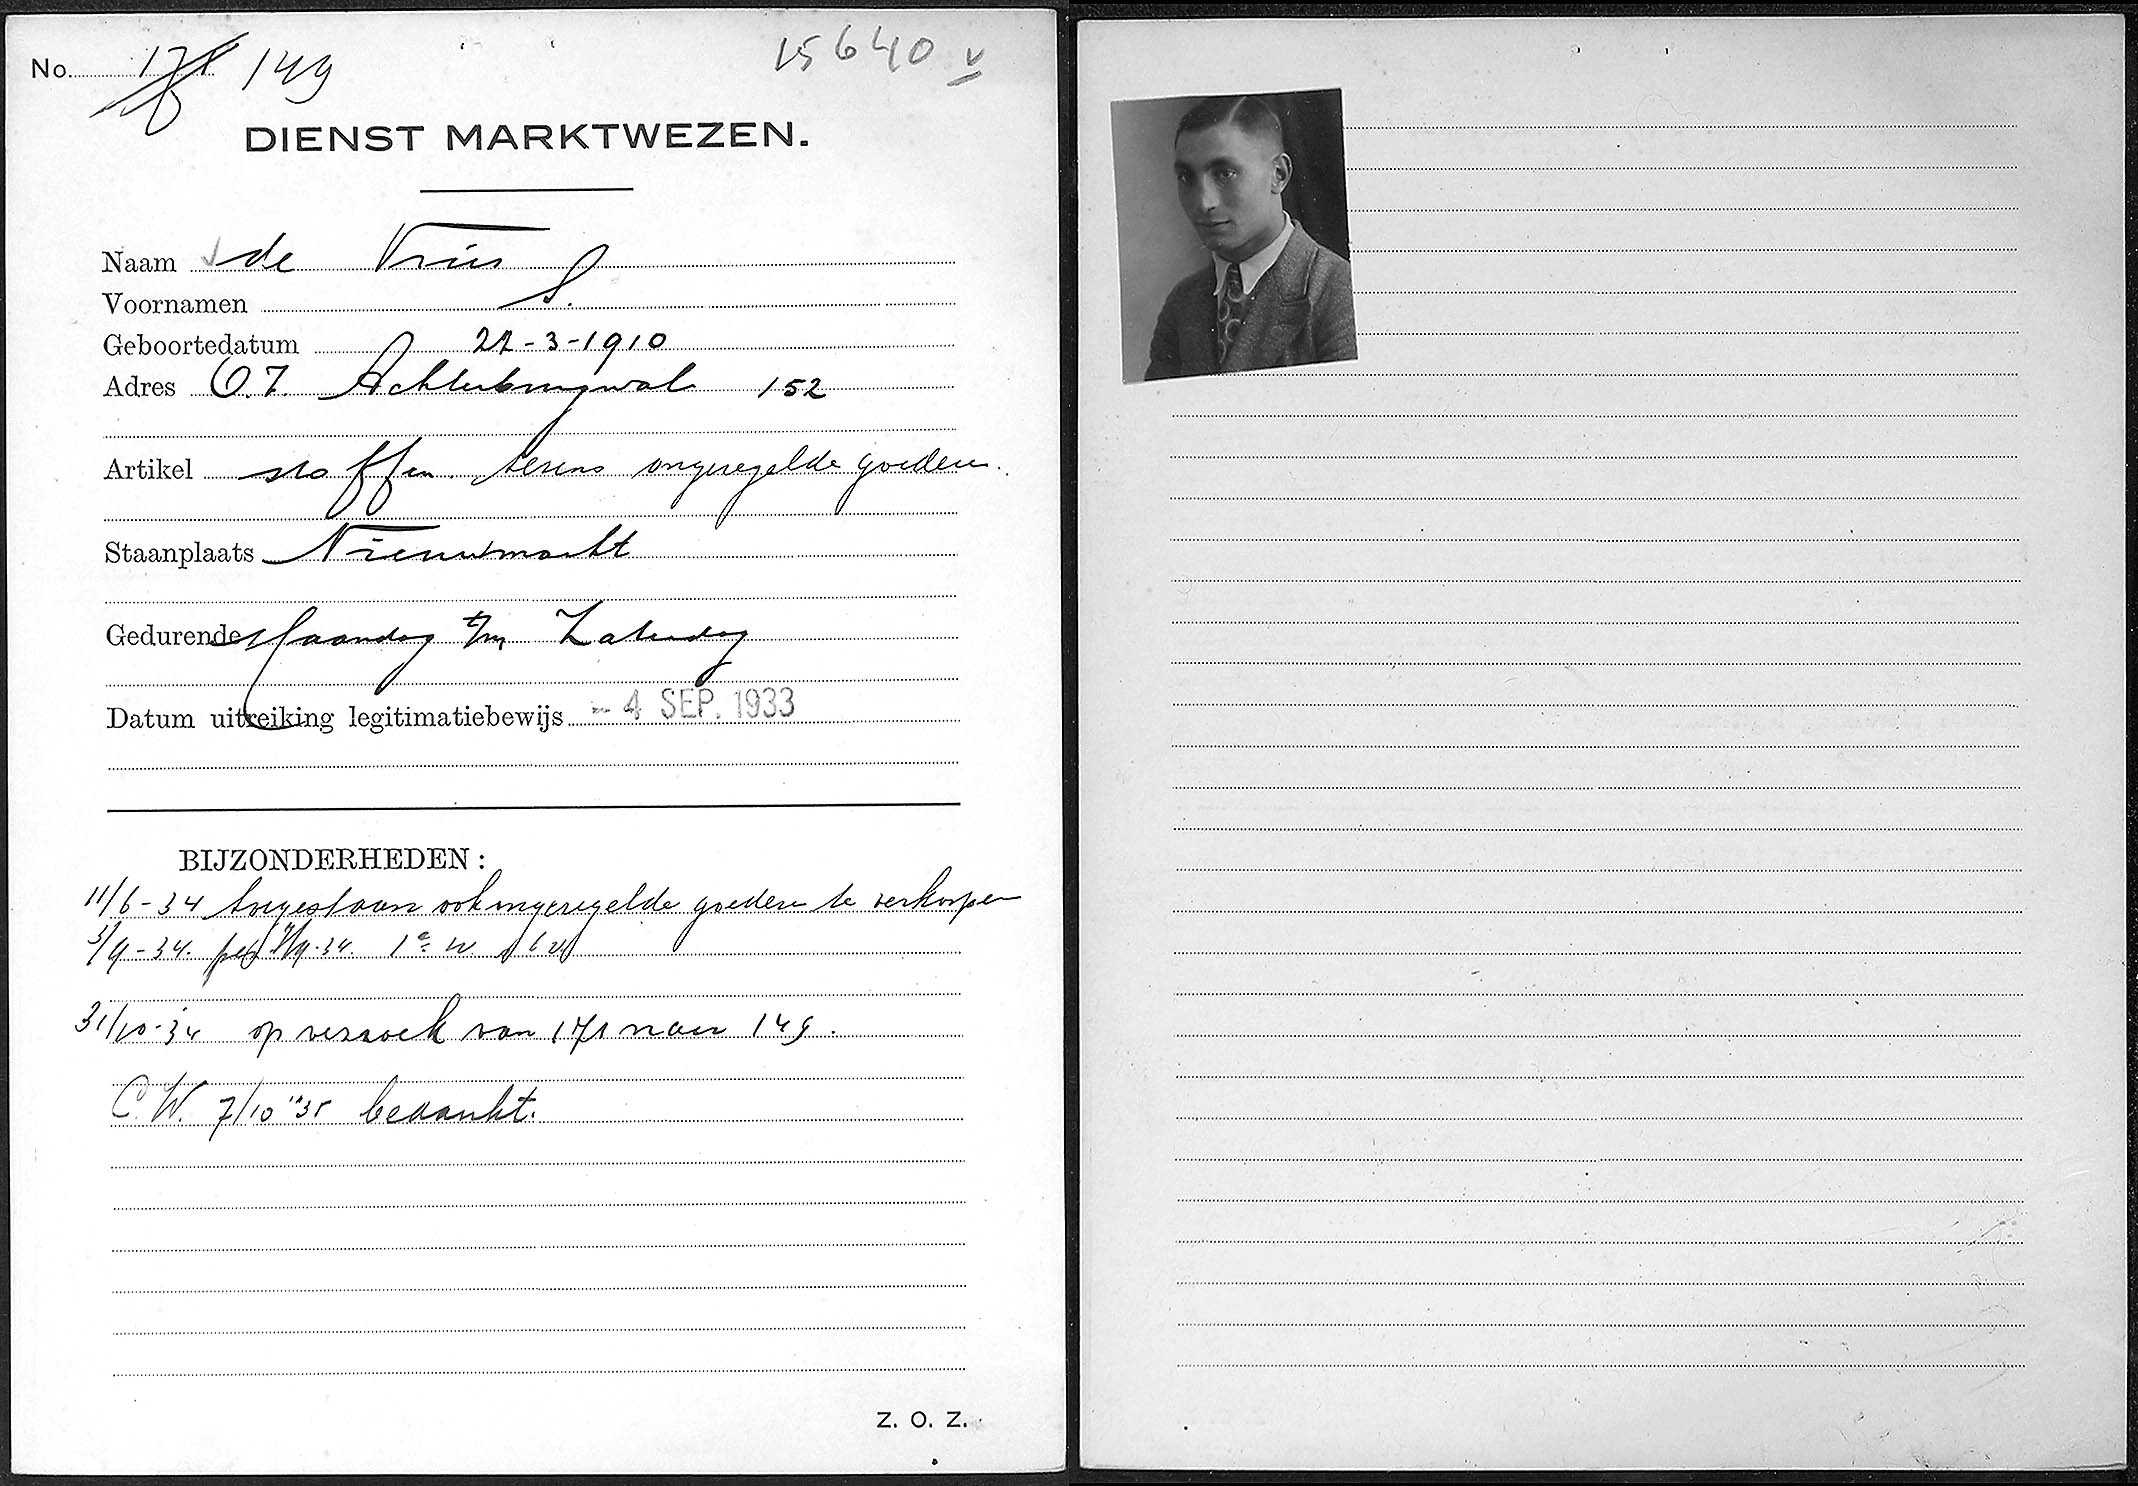 No. 171 149 15640 v
DIENST MARKTWEZEN.
Naam de Vries
Voornamen S.
Geboortedatum 22-3-1910
Adres O.Z. Achterburgwal 152
Artikel stoffen tevens ongeregelde goederen.
Staanplaats Nieuwmarkt
Gedurende Maandag t/m Zaterdag
Datum uitreiking legitimatiebewijs - 4 SEP. 1933
BIJZONDERHEDEN:
11/6-34 toegestaan ook ongeregelde goederen te verkoopen
3/9-34. per 1e w
31/10-34 op verzoek van 171 naar 149.
C.W. 7/10 "35 bedankt.
Z. O. Z.